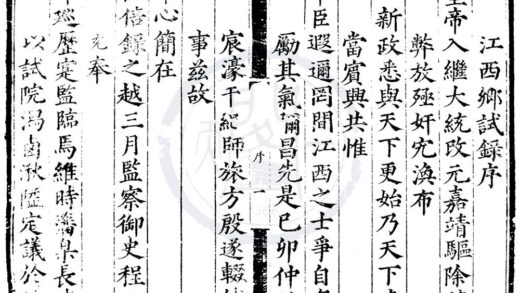 江西鄉試錄序
皇帝入繼大統改元嘉靖驅除
弊放殛奸宄渙布
新政悉與天下更始乃天下
當賓興共惟
臣遐邇罔間江西之士爭自
勵其氣彌昌先是己卯仲
序 一
宸濠干紀師旅方殷遂輟
事茲故
心簡在
禧錄之越三月監察御史程
奉
巡歷寔監臨焉維時藩臬長
以試院潟鹵湫隘定議於